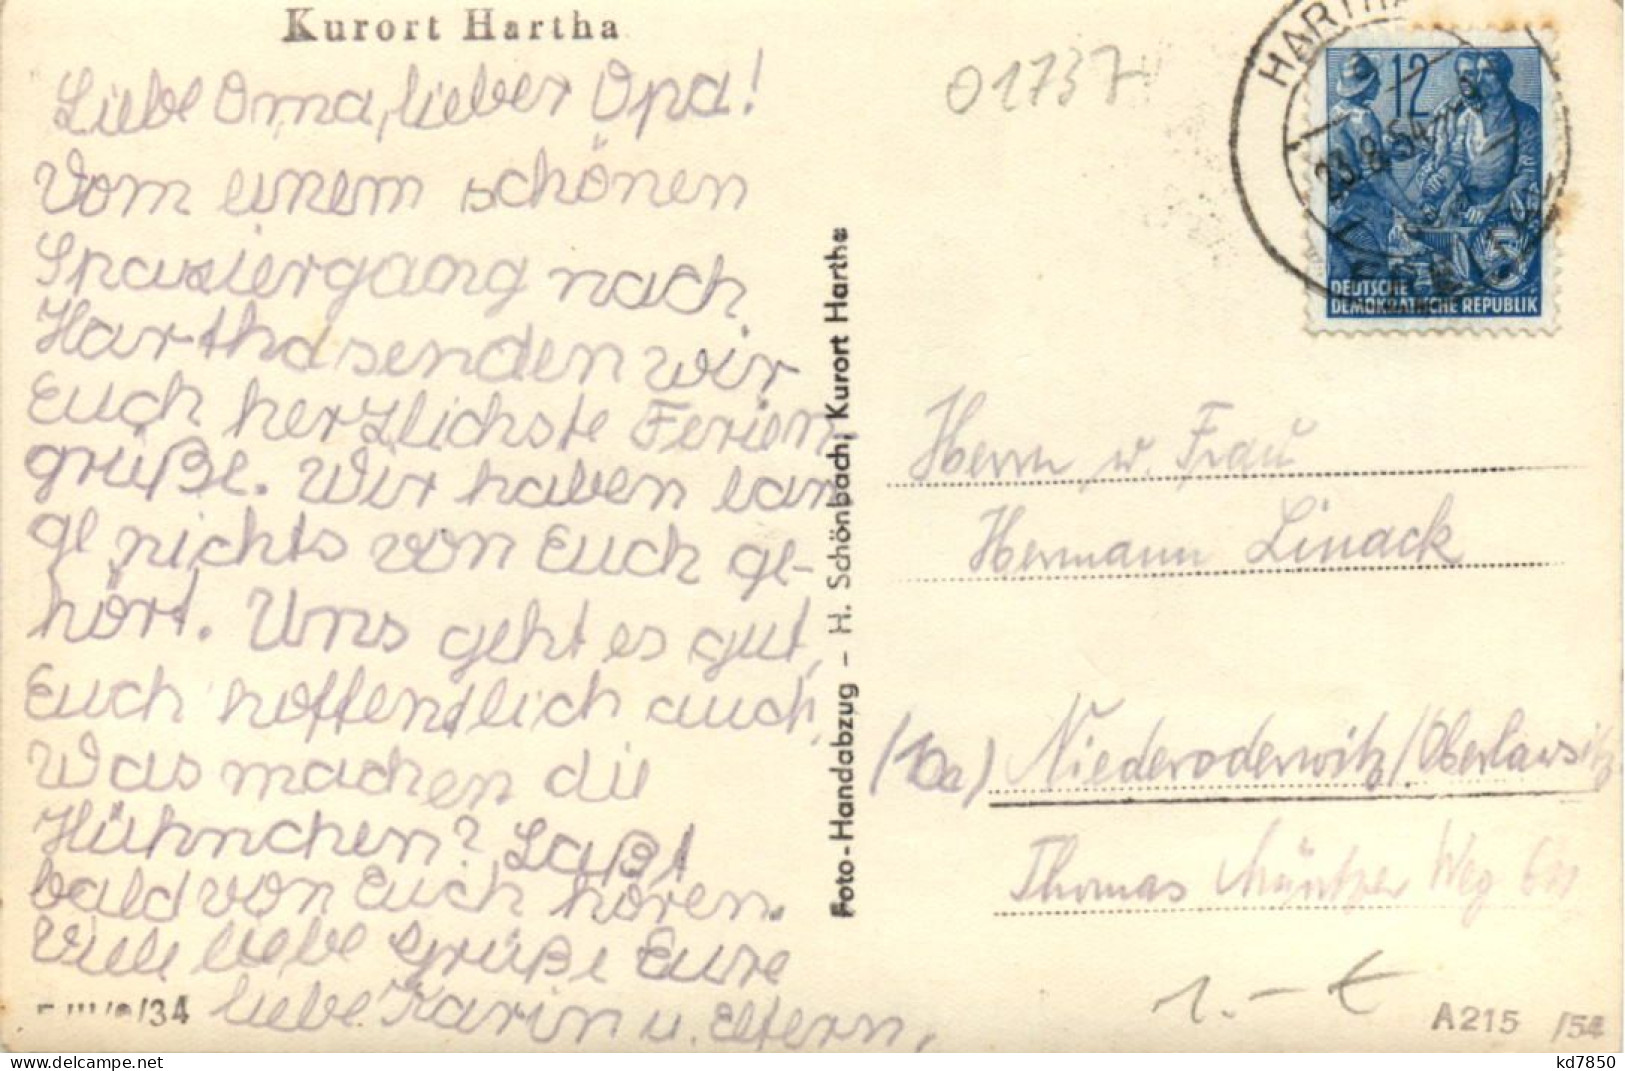 Kurort Hartha
Liebe Oma, lieber Opa!
Vom einem schönen
Spaziergang nach
Hartha senden wir
Euch herzlichste Ferien
grüße. Wir haben lan
ge nichts von Euch ge-
hört. Uns geht es gut,
Euch hoffendlich auch,
Was machen die
Hühnchen? Laßt
bald von Euch hören.
Viele liebe Grüße Eure
liebe Karin u. Eltern.
/34
Foto-Handabzug – H. Schönbach, Kurort Hartha
01737
HARTHA
23.8.54
12
DEUTSCHE
DEMOKRATISCHE REPUBLIK
Herrn u. Frau
Hermann Linack
(10a) Niederoderwitz/Oberlausitz
Thomas Müntzer Weg
1.- €
A215 /54
kd7850